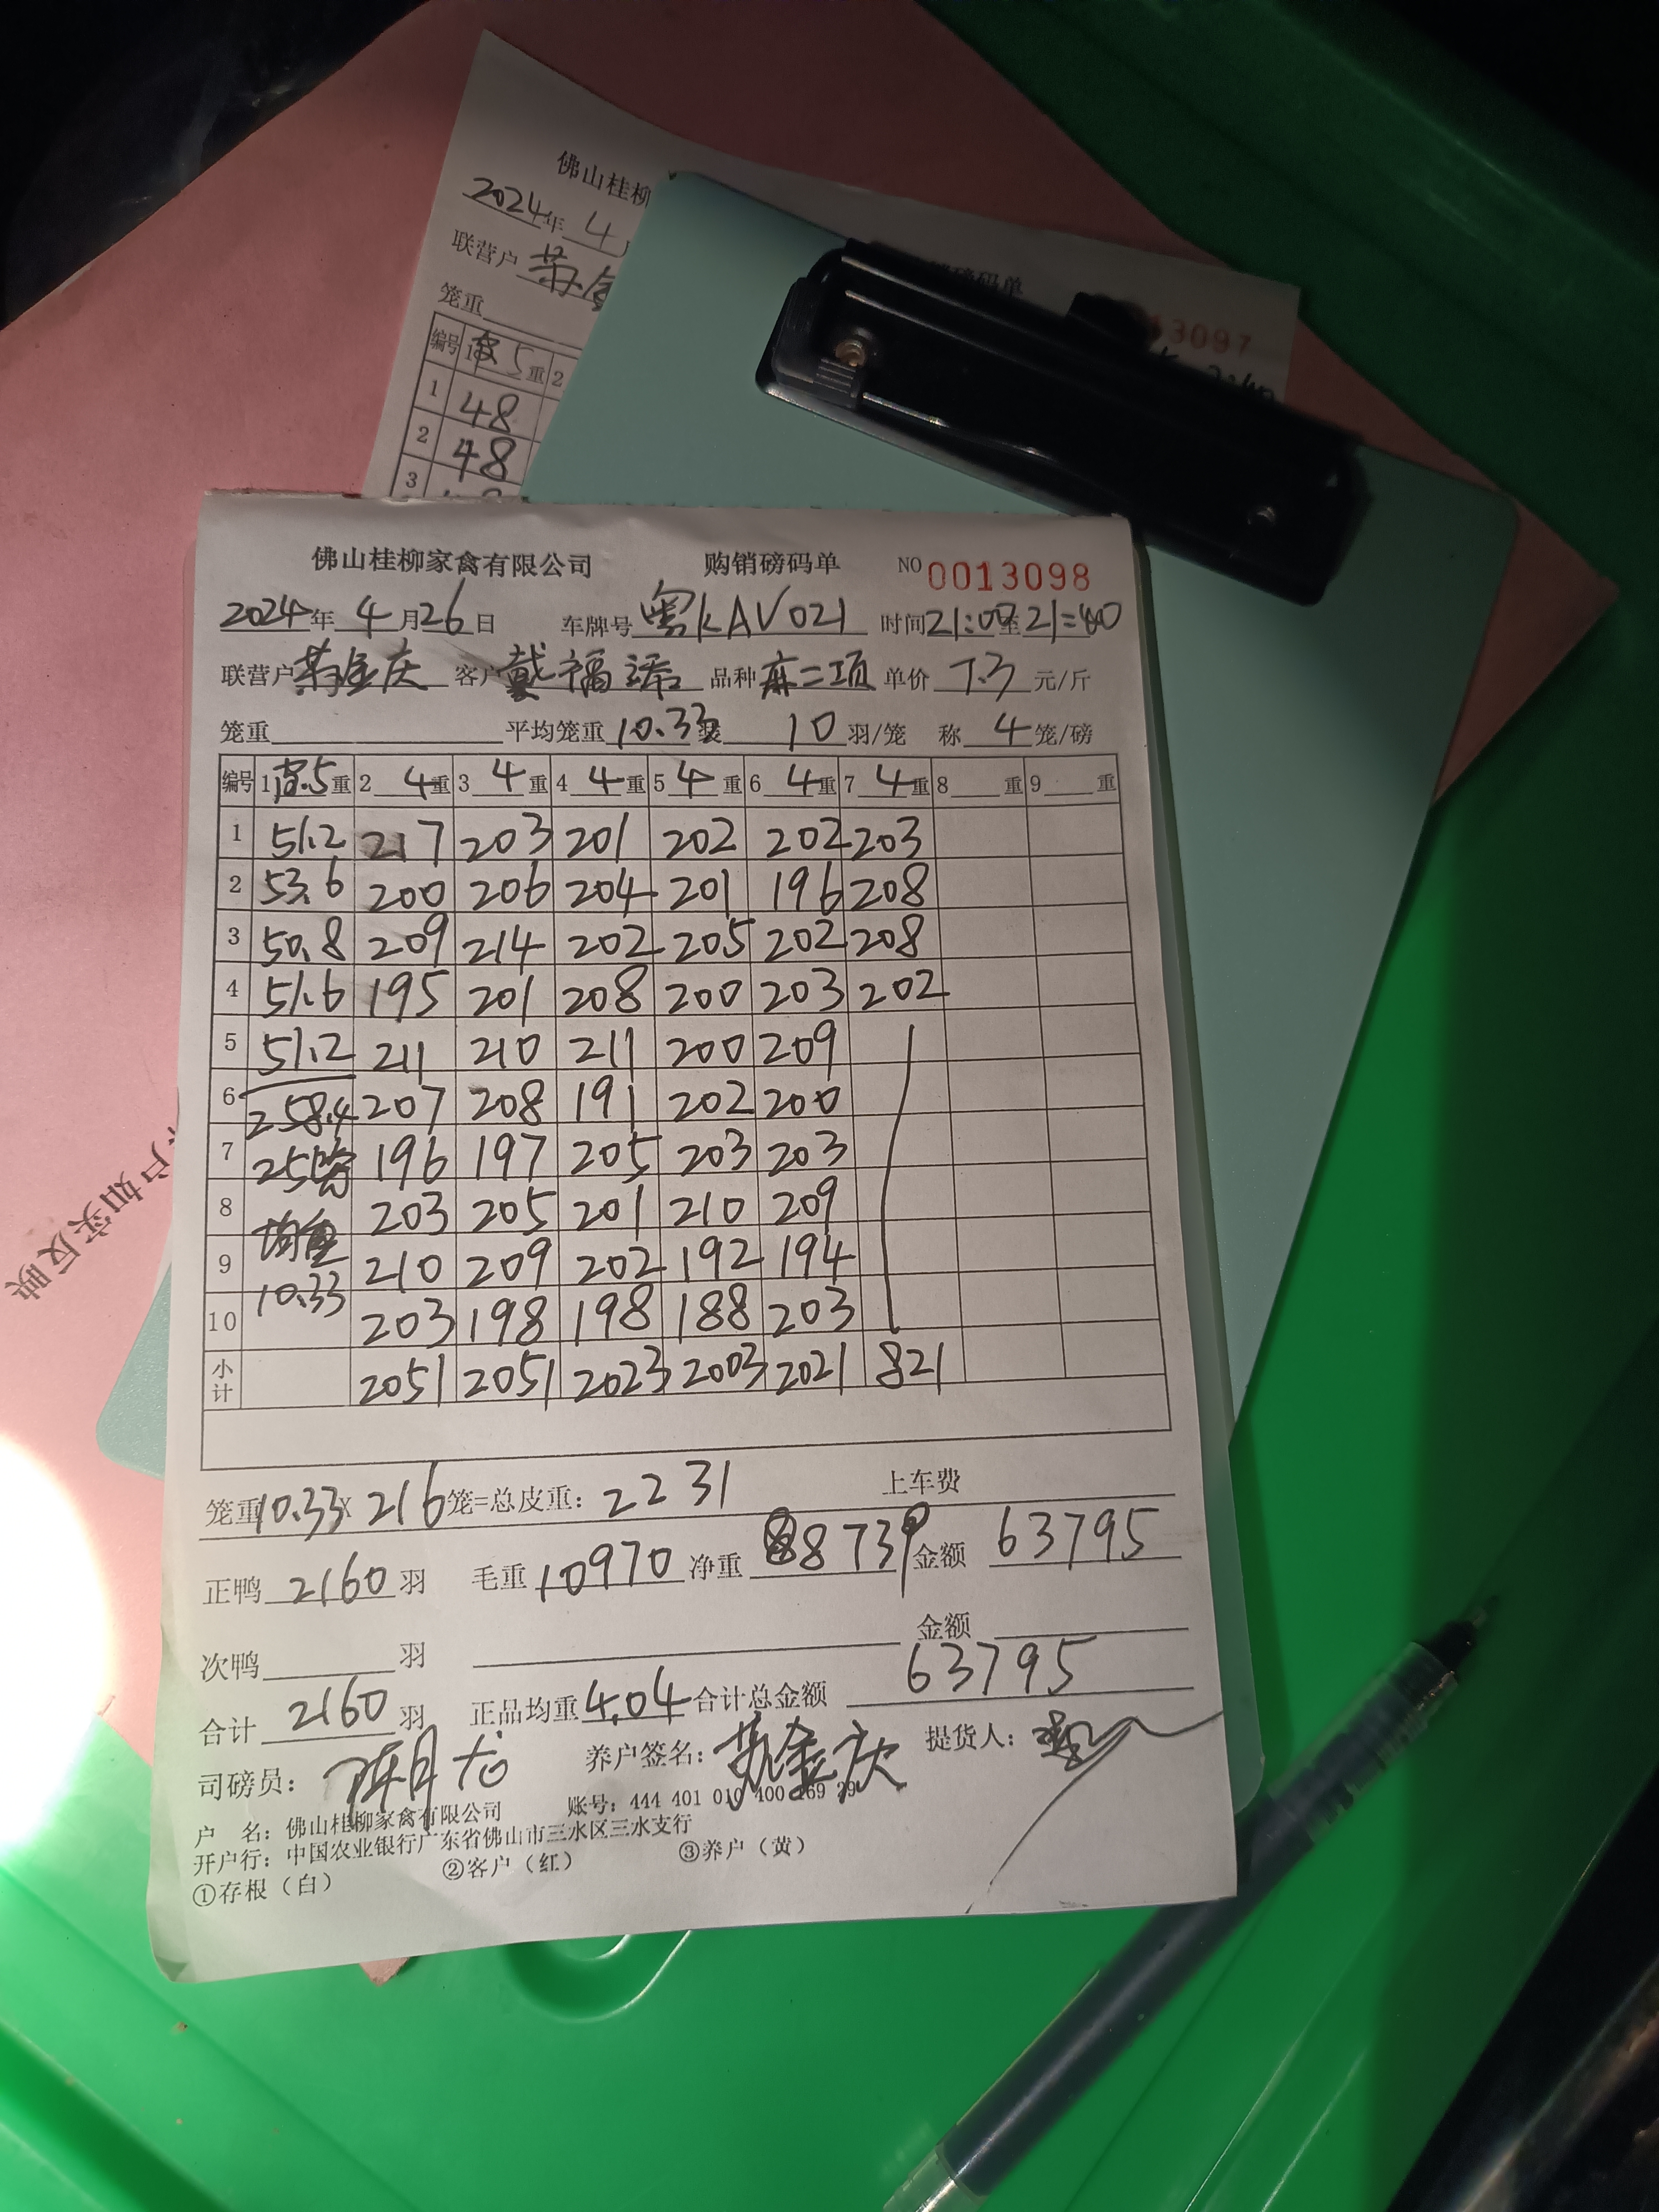 佛山桂柳
2024年 4
联营户
笼重
编号 1 5重 2
1 48
2 48
3
磅码单
13097
户如实反映
佛山桂柳家禽有限公司 购销磅码单 NO 0013098
2024年 4月26日 车牌号 粤KAV021 时间21:00至21:40
联营户 金庆 客户 戴福 品种 麻二项 单价 7.3 元/斤
笼重 平均笼重 10.33 装 10 羽/笼 称 4 笼/磅
编号 1 5重 2 4重 3 4重 4 4重 5 4重 6 4重 7 4重 8 重 9 重
1 51.2 217 203 201 202 202 203
2 53.6 200 206 204 201 196 208
3 50.8 209 214 202 205 202 208
4 51.6 195 201 208 200 203 202
5 51.2 211 210 211 200 209
6 258.4 207 208 191 202 200
7 25 196 197 205 203 203
8 均重 203 205 201 210 209
9 10.33 210 209 202 192 194
10 203 198 198 188 203
小计 2051 2051 2023 2003 2021 821
笼重10.33X 216笼=总皮重: 2231 上车费
正鸭 2160 羽 毛重 10970 净重 8739 金额 63795
次鸭 羽 金额
合计 2160 羽 正品均重 4.04 合计总金额 63795
司磅员: 养户签名: 金庆 提货人:
户 名: 佛山桂柳家禽有限公司 账号: 444 401 010 400 169 39
开户行: 中国农业银行广东省佛山市三水区三水支行
①存根（白） ②客户（红） ③养户（黄）